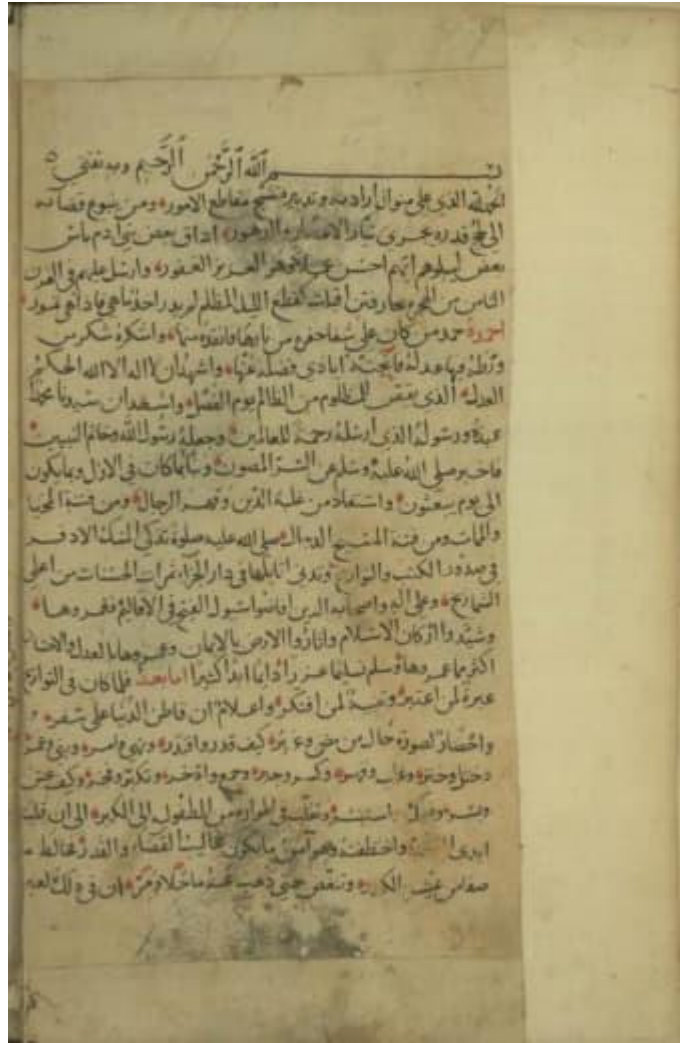 بسم الله الرحمن الرحيم وبه ثقتي
الحمد لله الذي على منوال ارادته وتدبيره نسج مقاطع الامور ومن ينبوع قضائه
الى لج قدره يجري تيار الاعصار والدهور اذاق بعض بني ادم باس
بعض ليبلوهم ايهم احسن عملا وهو العزيز الغفور وارسل عليهم في
الناس من بحار فتن اقبلت كقطع الليل المظلم فاذا هي تمور
احمده حمد من كان على شفا حفرة من نارها فانقذه منها واشكره شكر من
ورطة فيها عدله ايادي فضله عنها واشهد ان لا اله الا الله الحكم
العدل الذي يقتص للمظلوم من الظالم يوم الفصل واشهد ان سيدنا محمدا
عبده ورسوله الذي ارسله رحمة للعالمين وجعله رسول الله وخاتم النبيين
فاخبر صلى الله عليه وسلم عن السر المصون ونبا بما كان في الازل وما يكون
الى يوم يبعثون واستعاذ من غلبة الدين وقهر الرجال ومن فتنة المحيا
والممات ومن فتنة المسيح الدجال صلى الله عليه صلوة تذكي المسك الاذفر
في صدور الكتب والتواريخ وتدني لقائلها في دار الجزاء ثمرات الحسنات من اعلى
الشماريخ وعلى اله واصحابه الذين افاضوا سيول الفتح في الاقاليم ففجروها
وشيدوا اركان الاسلام واثاروا الارض بالايمان وعمروها بالعدل والاحسان
اكثر مما عمروها وسلم تسليما دائما ابدا كثيرا اما بعد فلما كان في التواريخ
عبرة لمن اعتبر وتنبيه لمن افتكر واعلام ان قاطن الدنيا على سفر
واحضار لصورة حال من مضى وغبر كيف قدر واقتدر ونهى وامر وبنى وعمر
وختل وختر وغلب وقهر وكسر وجبر وجمع وادخر وتكبر وفخر وكيف عبس
وبسر واستبشر وتقلب في اطواره من الطفول الى الكبر الى ان قلب
ايدي واختطفه وهو امن ما يكون مخاليب القضاء والقدر فخالط ما
صفا من عيش الكدر وتنغص حتى ذهب عنه ما حلا ومر ان في ذلك لعبر